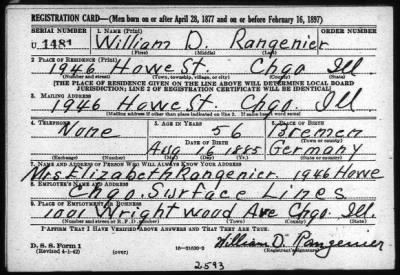 REGISTRATION CARD—(Men born on or after April 28, 1877 and on or before February 16, 1897)
SERIAL NUMBER 1. NAME (Print) ORDER NUMBER
U 1481 William D. Rangenier
(First) (Middle) (Last)
2. PLACE OF RESIDENCE (Print)
1946 Howe St. Chgo Ill
(Number and street) (Town, township, village, or city) (County) (State)
[THE PLACE OF RESIDENCE GIVEN ON THE LINE ABOVE WILL DETERMINE LOCAL BOARD
JURISDICTION; LINE 2 OF REGISTRATION CERTIFICATE WILL BE IDENTICAL]
3. MAILING ADDRESS
1946 Howe St. Chgo. Ill
[Mailing address if other than place indicated on line 2. If same insert word same]
4. TELEPHONE 5. AGE IN YEARS 6. PLACE OF BIRTH
None 56 Bremen
DATE OF BIRTH (Town or county)
Aug 16 1885 Germany
(Exchange) (Number) (Mo.) (Day) (Yr.) (State or country)
7. NAME AND ADDRESS OF PERSON WHO WILL ALWAYS KNOW YOUR ADDRESS
Mrs Elizabeth Rangenier 1946 Howe
8. EMPLOYER'S NAME AND ADDRESS
Chgo. Surface Lines
9. PLACE OF EMPLOYMENT OR BUSINESS
1001 Wrightwood Ave Chgo. Ill.
(Number and street or R. F. D. number) (Town) (County) (State)
I AFFIRM THAT I HAVE VERIFIED ABOVE ANSWERS AND THAT THEY ARE TRUE.
D. S. S. Form 1 William D. Rangenier
(Revised 4-1-42) (over) (Registrant's signature)
2593